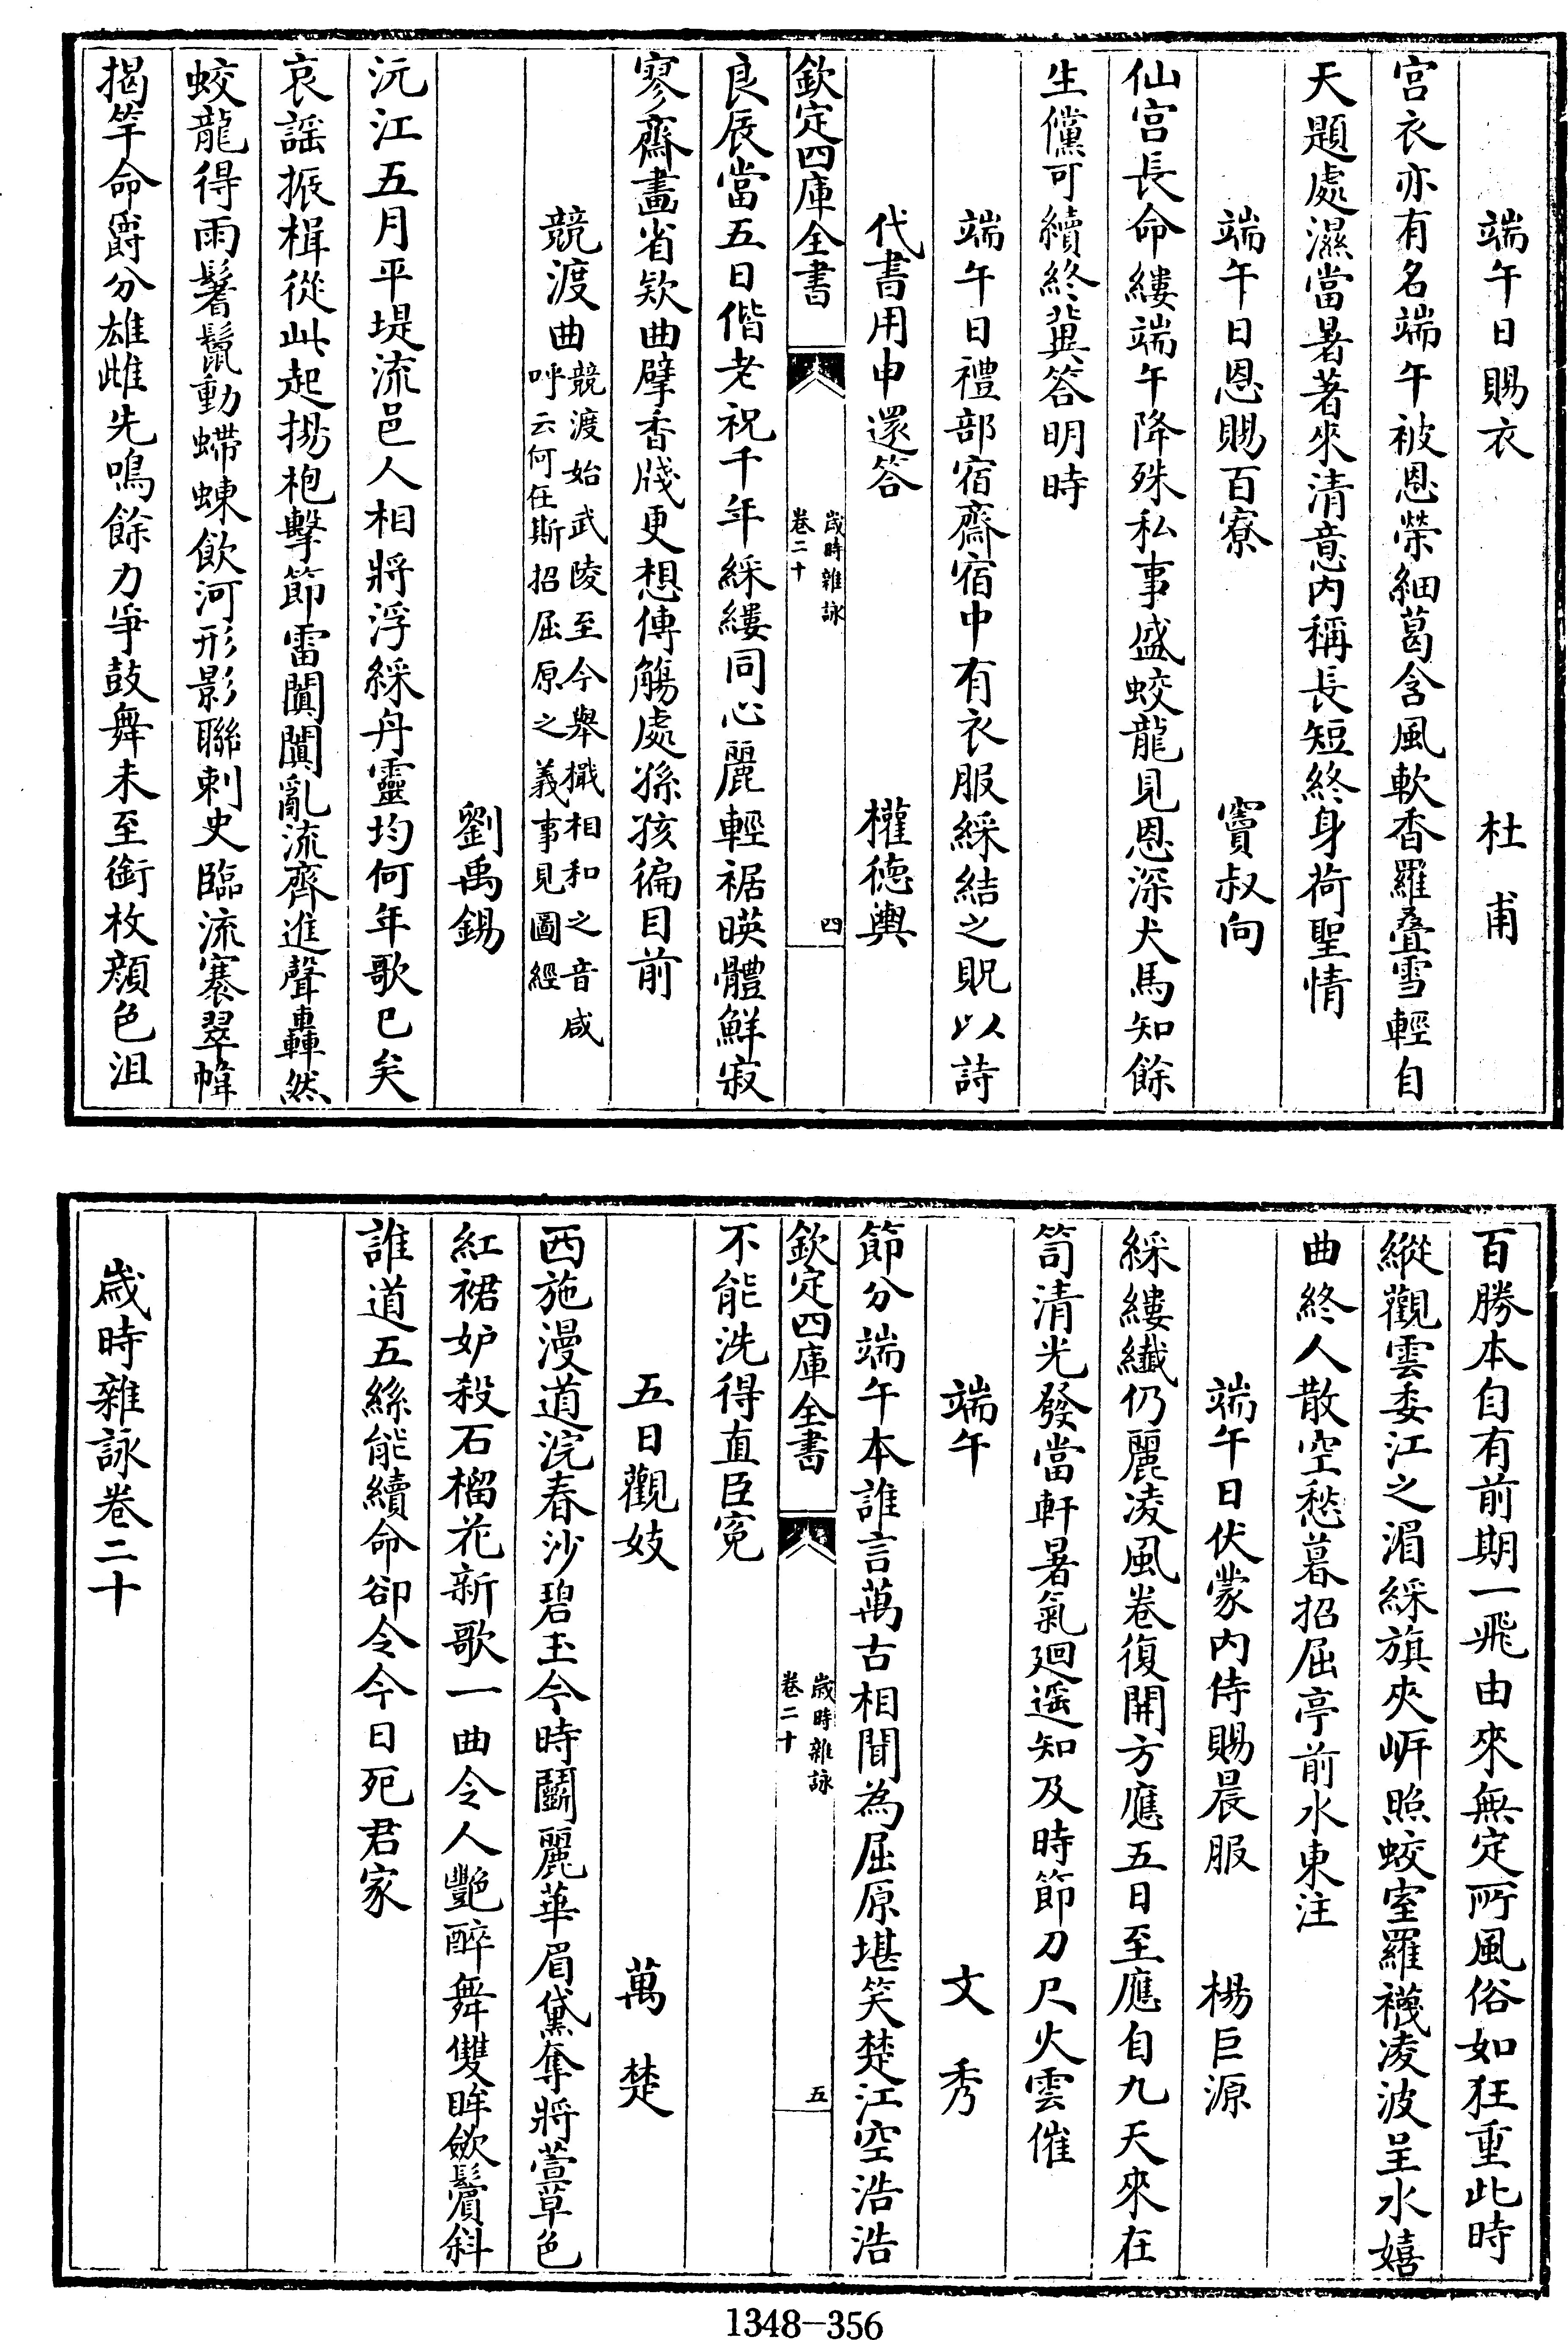 端午日賜衣　杜甫
宫衣亦有名端午被恩榮細葛含風軟香羅疊雪輕自
天題處濕當暑著來清意内稱長短終身荷聖情
端午日恩賜百寮　竇叔向
仙宫長命縷端午降殊私事盛蛟龍見恩深犬馬知餘
生儻可續終冀答明時
端午日禮部宿齋宿中有衣服綵結之貺以詩
代書用申還答　權德輿
欽定四庫全書　歲時雜詠　卷二十　四
良辰當五日偕老祝千年綵縷同心麗輕裾暎體鮮寂
寥齋畫省欵曲擘香牋更想傳觴處孫孩徧目前
競渡曲　競渡始武陵至今舉檝相和之音咸
呼云何在斯招屈原之義事見圖經
劉禹錫
沅江五月平堤流邑人相將浮綵舟靈均何年歌已矣
哀謡振楫從此起揚枹擊節雷闐闐亂流齊進聲轟然
蛟龍得雨鬐鬛動螮蝀飲河形影聯刺史臨流褰翠幃
揭竿命爵分雄雌先鳴餘力爭鼓舞未至銜枚顔色沮
百勝本自有前期一飛由來無定所風俗如狂重此時
縱觀雲委江之湄綵旗夾岍照蛟室羅襪凌波呈水嬉
曲終人散空愁暮招屈亭前水東注
端午日伏蒙内侍賜晨服　楊巨源
綵縷纖仍麗凌風卷復開方應五日至應自九天來在
笥清光發當軒暑氣廻遥知及時節刀尺火雲催
端午　文秀
節分端午本誰言萬古相聞為屈原堪笑楚江空浩浩
欽定四庫全書　歲時雜詠　卷二十　五
不能洗得直臣寃
五日觀妓　萬楚
西施漫道浣春沙碧玉今時鬭麗華眉黛奪將萱草色
紅裙妒殺石榴花新歌一曲令人艷醉舞雙眸斂鬢斜
誰道五絲能續命卻令今日死君家
歲時雜詠卷二十
1348-356